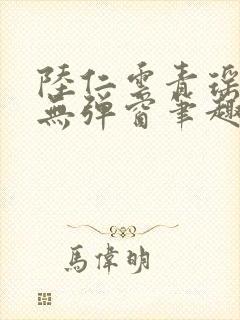 陸仁雲青瑶
無彈窗筆趣
馬偉明